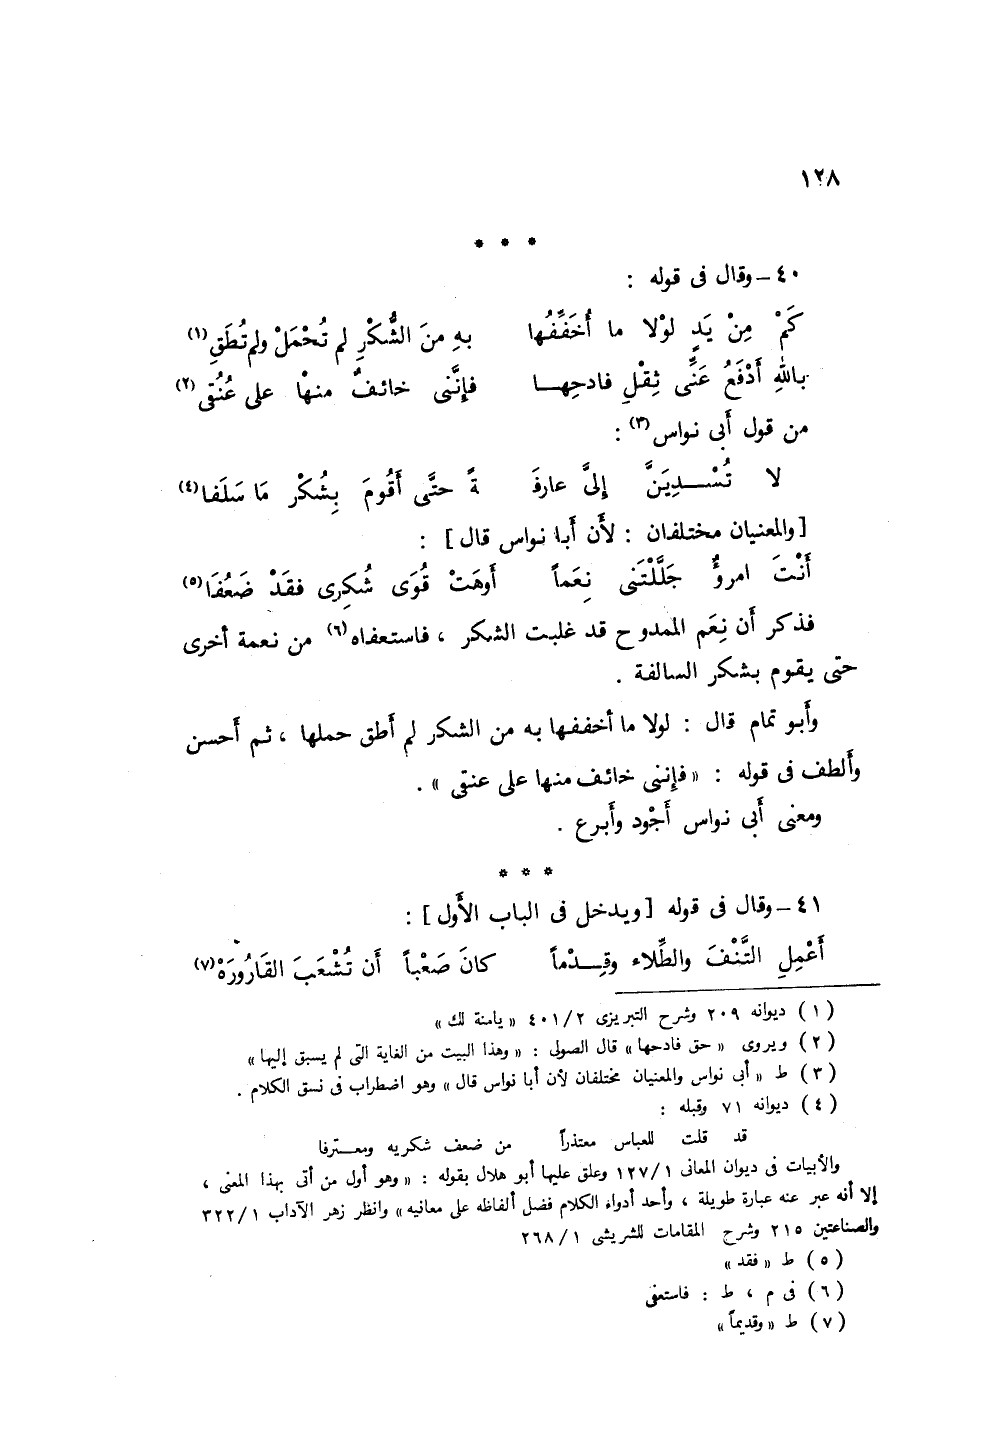 ١٢٨
* * *
٤٠ – وقال فى قوله :
كَمْ مِنْ يَدٍ لوْلا ما أُخَفِّفُها بهِ منَ الشُّكْرِ لم تُحْمَلْ ولم تُطَقِ(١)
باللهِ أَدْفَعُ عَنِّى ثِقْلِ فادحِها فإنَّنى خائفٌ منهْا على عُنُقى(٢)
من قول أَبى نواس(٣) :
لا تُسْــدِيَنَّ إلىَّ عارفَةً حتَّى أَقُومَ بِشُكْر مَا سَلَفا(٤)
[والمعنيان مختلفان : لأن أَبا نواس قال] :
أَنْتَ امرؤٌ جَلَّلْتَنى نِعَماً أَوهَتْ قُوَى شُكِرى فقَدْ ضَعُفَا(٥)
فذكر أن نِعَم الممدوح قد غلبت الشكر ، فاستعفاه(٦) من نعمة أخرى
حتى يقوم بشكر السالفة .
وأَبو تمام قال : لولا ما أخففها به من الشكر لم أَطق حملها ، ثم أَحسن
وأَلطف فى قوله : « فإننى خائف منها على عنقى » .
ومعنى أَبى نواس أَجْود وأَبرع .
* * *
٤١ – وقال فى قوله [ويدخل فى الباب الأَول] :
أَعْمِلِ التَّنْفَ والطِّلاء وقِــدْماً كانَ صَعْباً أَن تُشْعَبَ القَارُورَهْ(٧)
(١) ديوانه ٢٠٩ وشرح التبريزى ٤٠١/٢ « يامنة لك »
(٢) ويروى « حق فادحها » قال الصولى : « وهذا البيت من الغاية التى لم يسبق إليها »
(٣) ط « أبى نواس والمعنيان مختلفان لأن أبا نواس قال » وهو اضطراب فى نسق الكلام .
(٤) ديوانه ٧١ وقبله :
قد قلت للعباس معتذراً من ضعف شكريه ومعــترفا
والأبيات فى ديوان المعانى ١٢٧/١ وعلق عليها أبو هلال بقوله : « وهو أول من أتى بهذا المعنى ،
إلا أنه عبر عنه عبارة طويلة ، وأحد أدواء الكلام فضل ألفاظه على معانيه » وانظر زهر الآداب ٣٢٢/١
والصناعتين ٢١٥ وشرح المقامات للشريشى ٢٦٨/١
(٥) ط « فقد »
(٦) فى م ، ط : فاستعفى
(٧) ط « وقديماً »